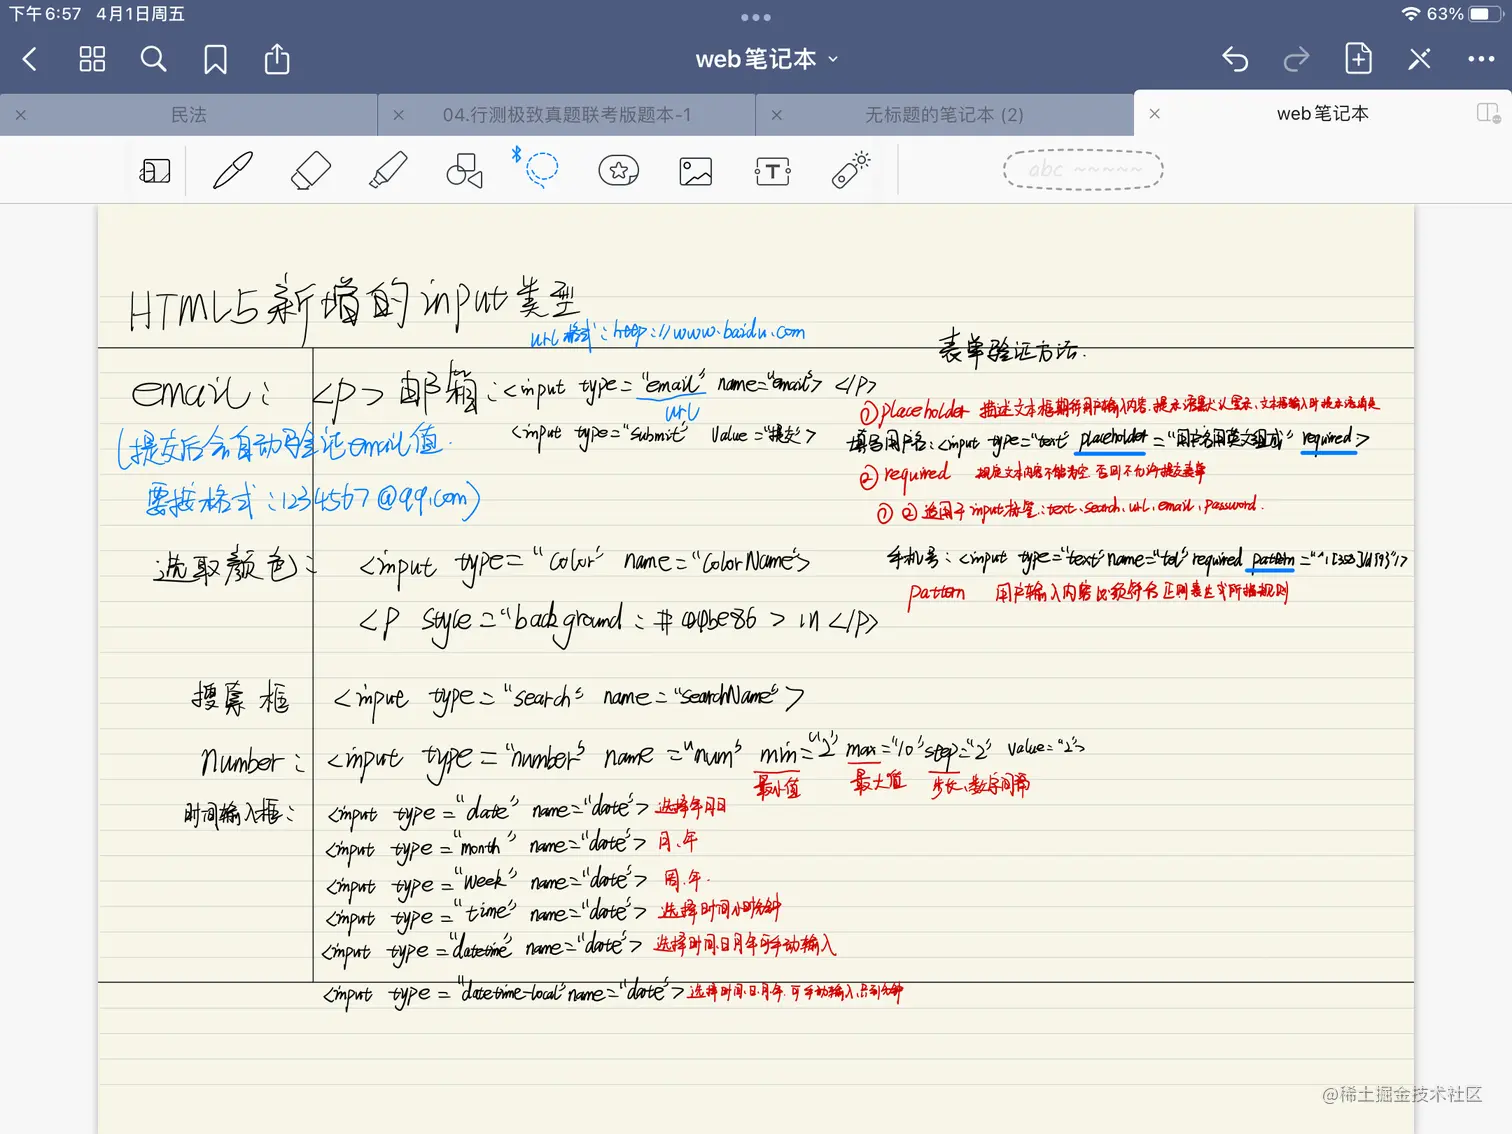 下午6:57 4月1日周五
63%
web笔记本
民法
04.行测极致真题联考版题本-1
无标题的笔记本 (2)
web笔记本
abc ~~~~~
HTML5新增的input类型
url格式:http://www.baidu.com
email: <p>邮箱:<input type="email" name="email"> </p>
url
<input type="submit" value="提交">
(提交后会自动验证email值.
需按格式:1234567@qq.com)
选取颜色: <input type="color" name="colorName">
<p style="background: # > in </p>
搜索框 <input type="search" name="searchName">
number: <input type="number" name="num" min="2" max="10" step="2" value="2">
最小值 最大值 步长、数字间隔
时间输入框: <input type="date" name="date"> 选择年月日
<input type="month" name="date"> 月.年
<input type="week" name="date"> 周.年.
<input type="time" name="date"> 选择时间小时分钟
<input type="datetime" name="date"> 选择时间.日月年可手动输入
<input type="datetime-local" name="date"> 选择时间.日.月.年.可手动输入
表单验证方法.
①placeholder 描述文本框期待用户输入内容.
填写用户名:<input type="text" placeholder="用户名用英文组成" required>
②required 规定文本内容不能为空.否则不允许提交表单
① ②适用于input标签:text、search、url、email、password.
手机号:<input type="text" name="tel" required
pattern 用户输入内容必须符合正则表达式所指规则
@稀土掘金技术社区